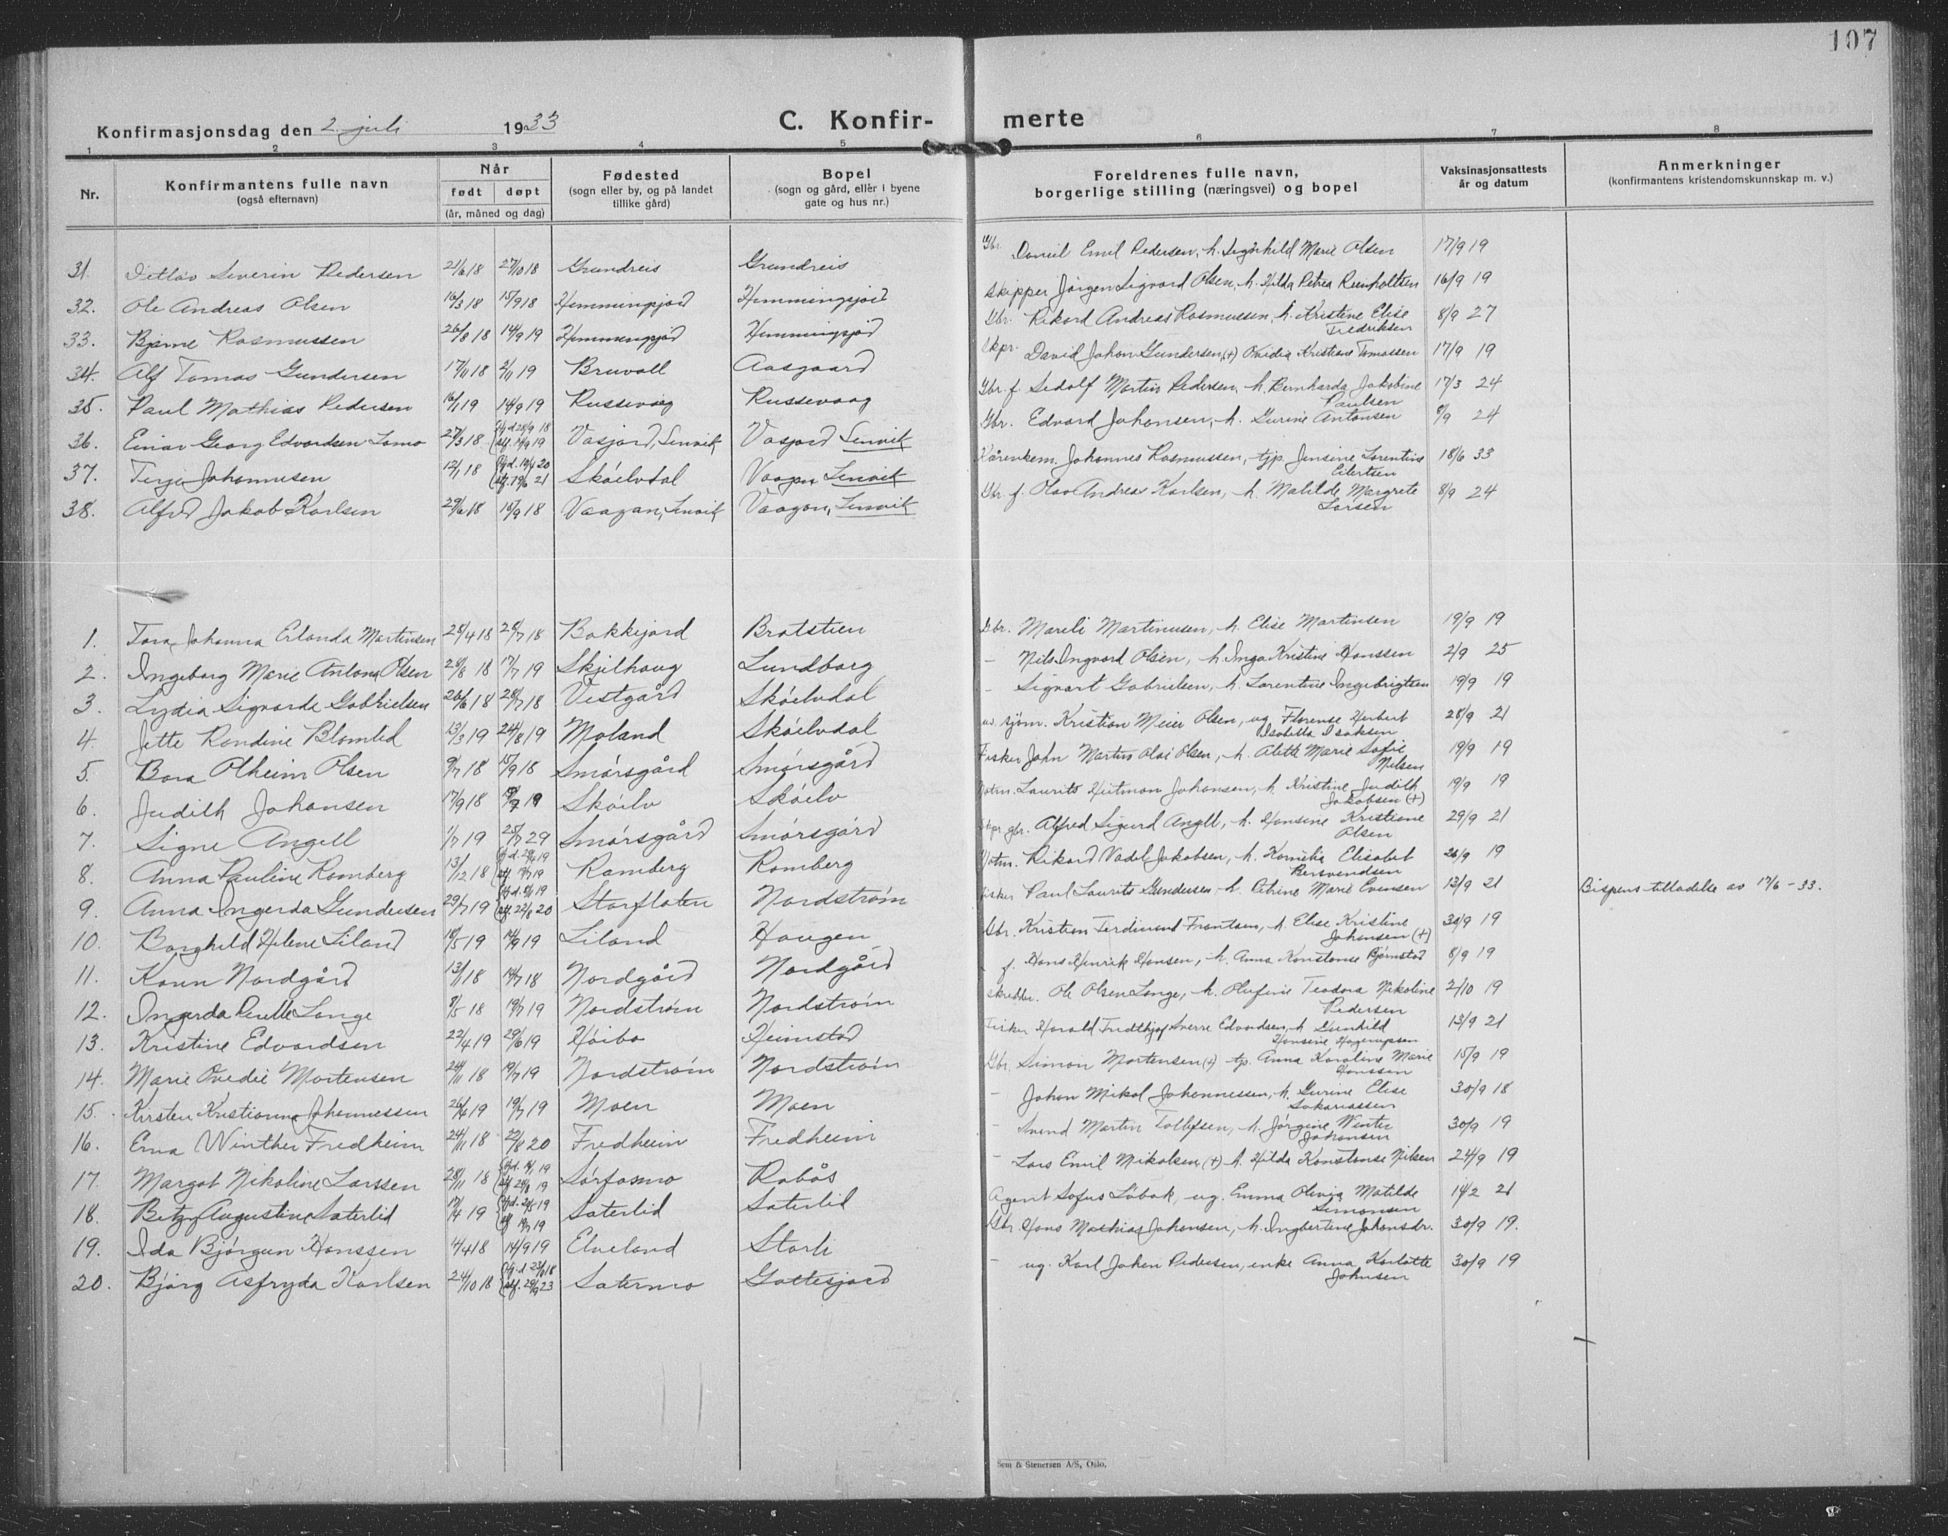 107
Konfirmasjonsdag den 2. juli 1933
C. Konfir- merte
1 2 3 4 5 6 7 8
Nr.
Konfirmantens fulle navn
(også efternavn)
Når
født døpt
(år, måned og dag)
Fødested
(sogn eller by, og på landet
tillike gård)
Bopel
(sogn og gård, eller i byene
gate og hus nr.)
Foreldrenes fulle navn,
borgerlige stilling (næringsvei) og bopel
Vaksinasjonsattests
år og datum
Anmerkninger
(konfirmantens kristendomskunnskap m. v.)
31. Ditlav Severin Pedersen 21/6 18 27/10 18 Grundreis Grundreis Gbr. Daniel Emil Pedersen, h. Signhild Marie Olsen 17/9 19
32. Ole Andreas Olsen 16/3 18 15/9 18 Hemmingsjord Hemmingsjord Skipper Jørgen Sigvard Olsen, h. Hilda Petrea Reinholtsen 16/9 19
33. Bjarne Rasmussen 26/8 18 14/9 19 Hemmingsjord Hemmingsjord Gbr. Rikard Andreas Rasmussen, h. Kristine Elise Fredriksen 8/9 27
34. Alf Tomas Gundersen 17/11 18 2/11 19 Bruvoll Aasgaard Skpr. David Johan Gundersen (+) Ovidia Kristiane Tomassen 17/9 19
35. Paul Mathias Pedersen 16/1 19 14/9 19 Russevåg Russevaag Gbr. f. Sedolf Martin Pedersen, h. Bernharda Jakobine Paulsen 17/3 24
36. Einar Georg Edvardsen Lamo 27/3 18 hjd. 28/9 18 stf. 14/9 19 Vasjord, Lenvik Vasjord Lenvik Gbr. Edvard Johansen, h. Gurine Antonsen 8/9 24
37. Terje Johannesen 12/7 18 hjd. 19/4 20 stf. 19/6 21 Skøelvdal Vaagan Lenvik Kårenkem. Johannes Rasmussen, tjp. Jensine Lorentine Eilertsen 18/6 33
38. Alfred Jakob Karlsen 29/6 18 15/9 18 Vaagan, Lenvik Vaagan, Lenvik Gbr. f. Olav Andreas Karlsen, h. Matilde Margrete Larsen 8/9 24
1. Tora Johanna Erlanda Martinsen 28/4 18 28/7 18 Bakkejord Bratstien Gbr. Mareli Martinusen, h. Elise Martinsen 19/9 19
2. Ingeborg Marie Antona Olsen 28/8 18 17/7 19 Skjelhaug Lundborg - Nils Ingvard Olsen, h. Inga Kristine Hanssen 2/9 25
3. Lydia Sigvarda Gabrielsen 26/6 18 28/7 18 Vestgård Skøelvdal - Sigvart Gabrielsen, h. Lorentine Ingebrigtsen 19/9 19
4. Jette Randine Blomlid 13/3 19 24/8 19 Moland Skøelvdal sjøm. Kristian Meier Olsen, ug. Florense Herbert Isaksen 28/9 21
5. Bora Olheim Olsen 9/7 18 15/9 18 Smørsgård Smørsgård Fisker John Martin Olai Olsen, h. Alette Marie Sofie Nilsen 19/9 19
6. Judith Johansen 17/9 18 19 Skøelv Skøelv Laurits Hartman Johansen, h. Kristine Judith Jakobsen (+) 19/9 19
7. Signe Angell 1/7 19 25/7 29 Smørsgård Smørsgård Skpr. gbr. Alfred Sigurd Angell, h. Hansine Kristiane Olsen 29/9 21
8. Anna Pauline Ramberg 13/12 18 Ramberg Ramberg Rikard Vadel Jakobsen, h. Kornelia Elisabet Bersvendsen 26/9 19
9. Anna Ingerda Gundersen 29/7 19 stf. 22/8 20 Storfloten Nordstrøm Fisker Paul Laurits Gundersen h. Petrine Marie Evensen 12/9 21 Bispens tilladelse av 17/6 - 33.
10. Borghild Helene Liland 18/5 19 14/9 19 Liland Haugen Gbr. Kristian Ferdinand Frantsen, h. Elise Kristine Johansen (+) 30/9 19
11. Karin Nordgård 13/1 18 14/7 18 Nordgård Nordgård f. Hans Henrik Hansen, h. Anna Konstanse Bjørnstad 8/9 19
12. Ingerda Pernille Lange 8/5 18 19/7 19 Nordstrøm Nordstrøm Skredder. Ole Olsen Lange, h. Olufine Teodora Nikoline Pedersen 2/10 19
13. Kristine Edvardsen 22/4 19 29/6 19 Høibo Heimstad Fisker Harald Fredthjof Sverre Edvardsen, h. Gunhild Hansine Hagerupsen 13/9 21
14. Marie Ovedie Mortensen 24/11 18 19/7 19 Nordstrøm Nordstrøm Gbr. Simon Mortensen (+) tp. Anna Karoline Marie Hanssen 15/9 19
15. Kirsten Kristianna Johannessen 26/4 19 19/7 19 Moen Moen - Johan Mikal Johannessen, h. Gurine Elise Sakariassen 30/9 18
16. Erna Winther Fredheim 24/11 18 22/8 20 Fredheim Fredheim - Anend Martin Tollefsen, h. Jørgine Winter Johansen 30/9 19
17. Margot Nikoline Larssen 28/11 18 Sørfosmo Robås - Lars Emil Mikalsen (+) h. Hilda Konstanse Nilsen 24/9 19
18. Betzy Augustine Saterlid 17/4 19 Saterlid Saterlid Agent Sofus Løbak, ug. Emma Olivia Matilde Simonsen 14/2 21
19. Ida Bjørgun Hanssen 4/4 18 14/9 19 Elveland Storli Gbr. Hans Mathias Johansen, h. Ingbertine Johansdr. 30/9 19.
20. Bjørg Asfryda Karlsen 24/10 18 hjd. 23/11 18 stf. 29/9 23 Satermo Gottesjord - ug. Karl Johan Pedersen, enke Anna Karlotte Johnsen 30/9 19
Sem & Stenersen A/S, Oslo.